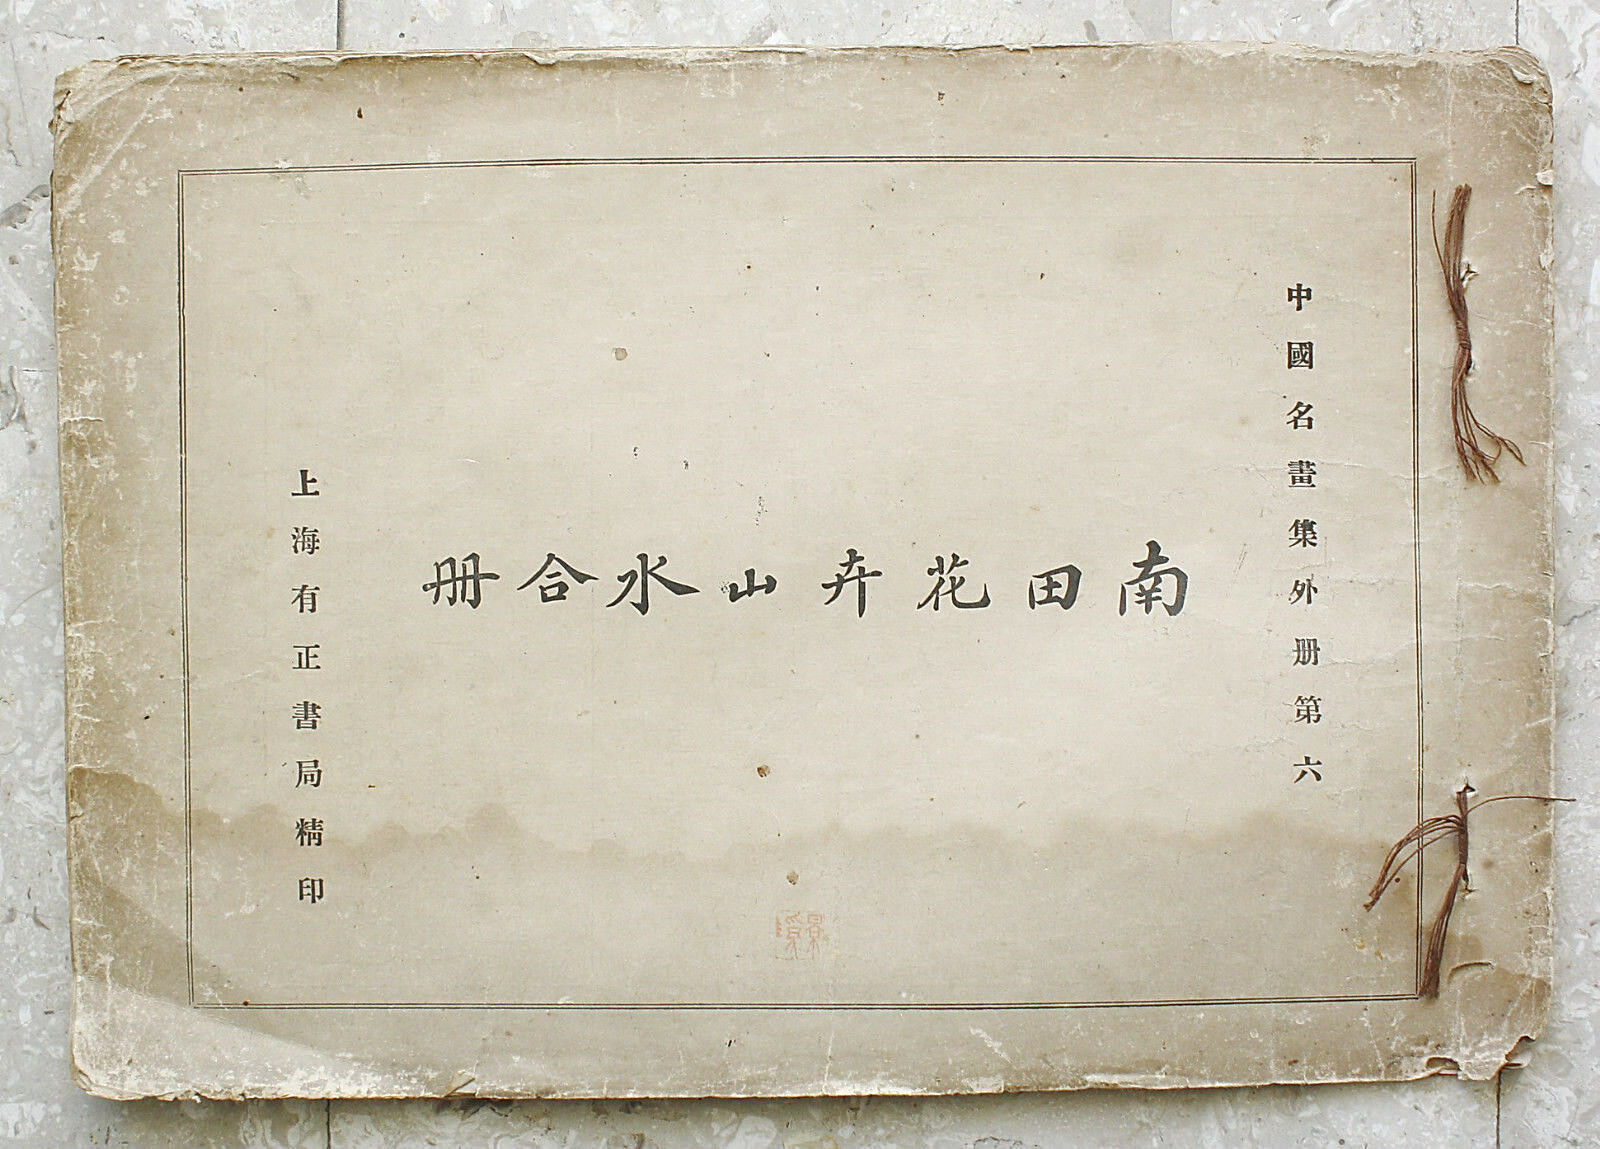 中國名畫集外册第六
南田花卉山水合册
上海有正書局精印